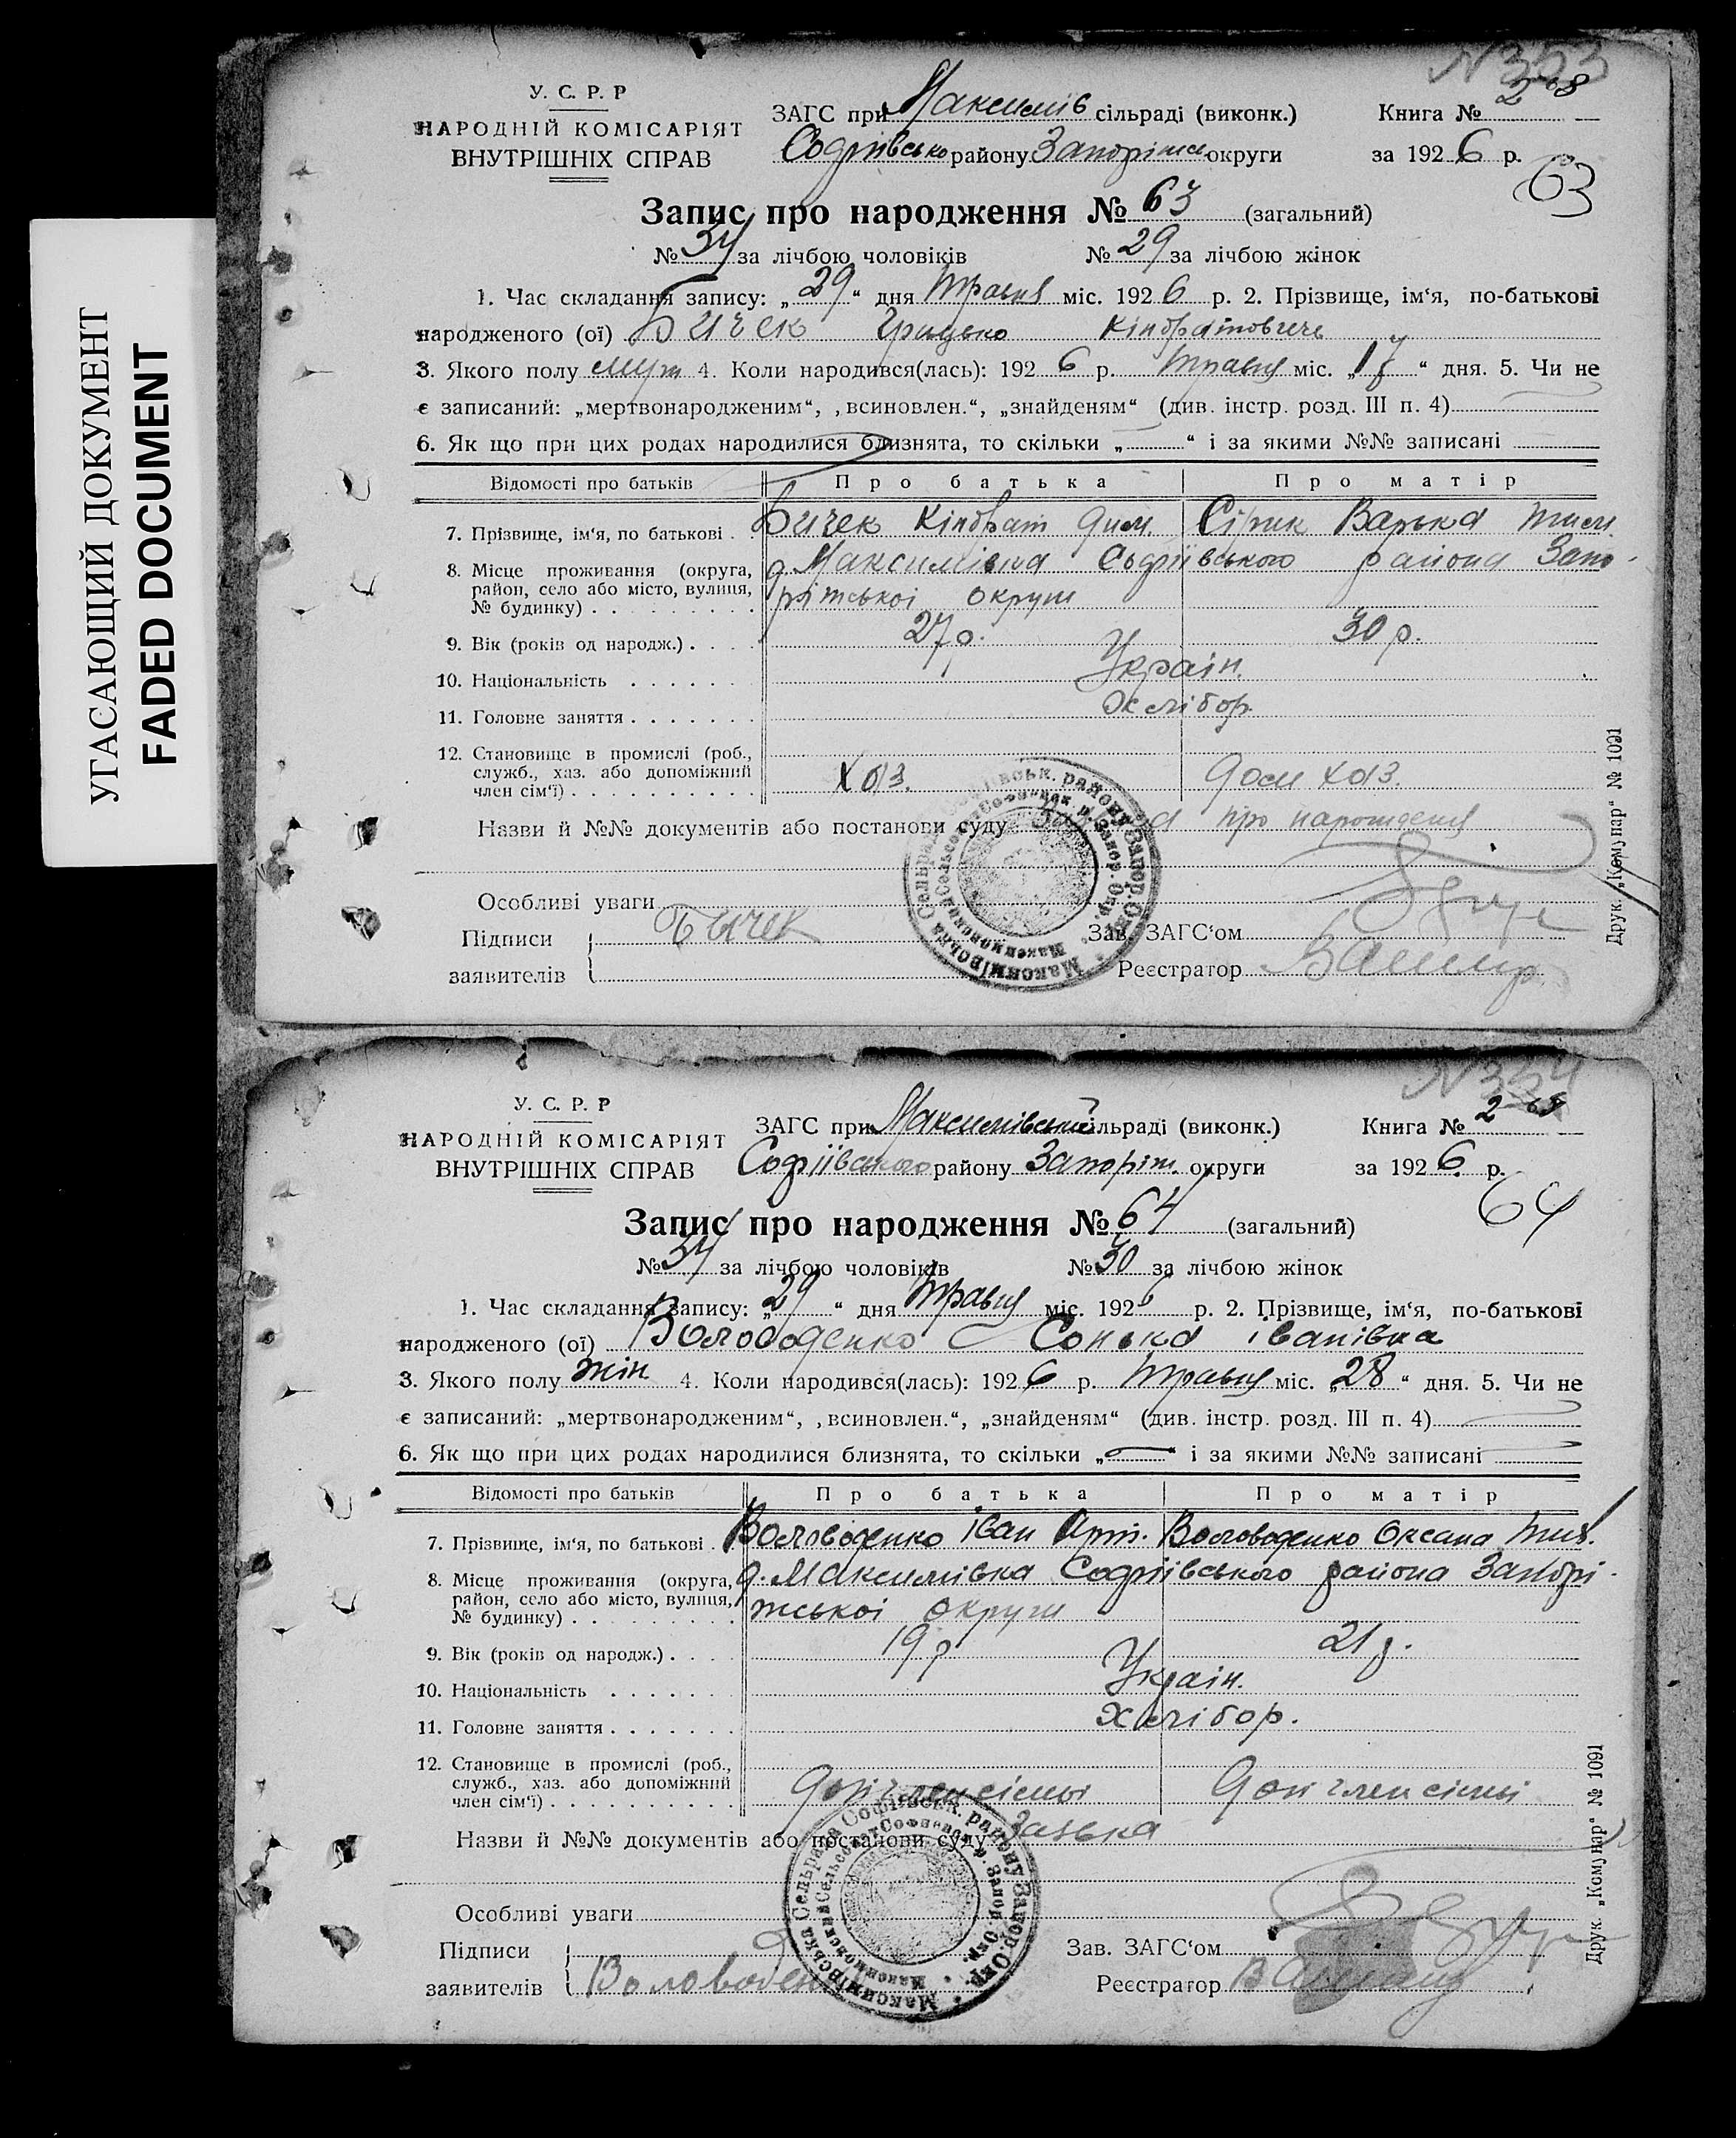 УГАСАЮЩИЙ ДОКУМЕНТ
FADED DOCUMENT
N 353
У. С. Р. Р
НАРОДНІЙ КОМІСАРІЯТ
ВНУТРІШНІХ СПРАВ
ЗАГС при Максимів сільраді (виконк.)
Книга № 2
Софіївсько району Запоріжск округи
за 1926 р.
63
Запис про народження № 63 (загальний)
№ 34 за лічбою чоловіків № 29 за лічбою жінок
1. Час складання запису: „29“ дня Травня міс. 1926 р. 2. Прізвище, ім‘я, по-батькові
народженого (ої) Бичек Грицько Кіндратовичь
3. Якого полу муж 4. Коли народився(лась): 1926 р. Травня міс. „17“ дня. 5. Чи не
є записаний: „мертвонародженим“, ‚всиновлен.“, „знайденям“ (див. інстр. розд. III п. 4)
6. Як що при цих родах народилися близнята, то скільки „ “ і за якими №№ записані
Відомості про батьків Про батька Про матір
7. Прізвище, ім‘я, по батькові . . Бичек Кіндрат Дим. Сірик Варька Тим.
8. Місце проживання (округа, район, село або місто, вулиця, № будинку) . . . . . . . . .
д. Максимівка Софіївського района Запо-
ріжської округи
9. Вік (років од народж.) . . . . 27 р. 30 р.
10. Національність . . . . . . . Україн.
11. Головне заняття . . . . . . . Хлібор.
12. Становище в промислі (роб., служб., хаз. або допоміжний член сім‘ї) . . . . . . . . . .
Хаз. Дом хаз.
Назви й №№ документів або постанови суду про народження
Особливі уваги
Підписи
заявителів
Бычек
Зав. ЗАГС‘ом
Реєстратор
Максимівська Сельрада Софіївськ. району Запор. Окр.
Друк. „Комунар“ № 1091
N 354
У. С. Р. Р
НАРОДНІЙ КОМІСАРІЯТ
ВНУТРІШНІХ СПРАВ
ЗАГС при Максимівській сільраді (виконк.)
Книга № 2
Софіївського району Запоріж. округи
за 1926 р.
64
Запис про народження № 64 (загальний)
№ 34 за лічбою чоловіків № 30 за лічбою жінок
1. Час складання запису: „29“ дня Травня міс. 1926 р. 2. Прізвище, ім‘я, по-батькові
народженого (ої) Воловоденко Сонька Іванівна
3. Якого полу жін 4. Коли народився(лась): 1926 р. Травня міс. „28“ дня. 5. Чи не
є записаний: „мертвонародженим“, ‚всиновлен.“, „знайденям“ (див. інстр. розд. III п. 4)
6. Як що при цих родах народилися близнята, то скільки „ “ і за якими №№ записані
Відомості про батьків Про батька Про матір
7. Прізвище, ім‘я, по батькові . . Воловоденко Іван Арт. Воловоденко Оксана Тив.
8. Місце проживання (округа, район, село або місто, вулиця, № будинку) . . . . . . . . .
д. Максимівка Софіївського района Запорі-
жської округи
9. Вік (років од народж.) . . . . 19 р 21 р.
10. Національність . . . . . . . Україн.
11. Головне заняття . . . . . . . Хлібор.
12. Становище в промислі (роб., служб., хаз. або допоміжний член сім‘ї) . . . . . . . . . .
Доп член сімьі Доп член сімьі
Назви й №№ документів або постанови суду Заявка
Особливі уваги
Підписи
заявителів
Воловоден
Зав. ЗАГС‘ом
Реєстратор
Максимівська Сельрада Софіївськ. району Запор. Окр.
Друк. „Комунар“ № 1091